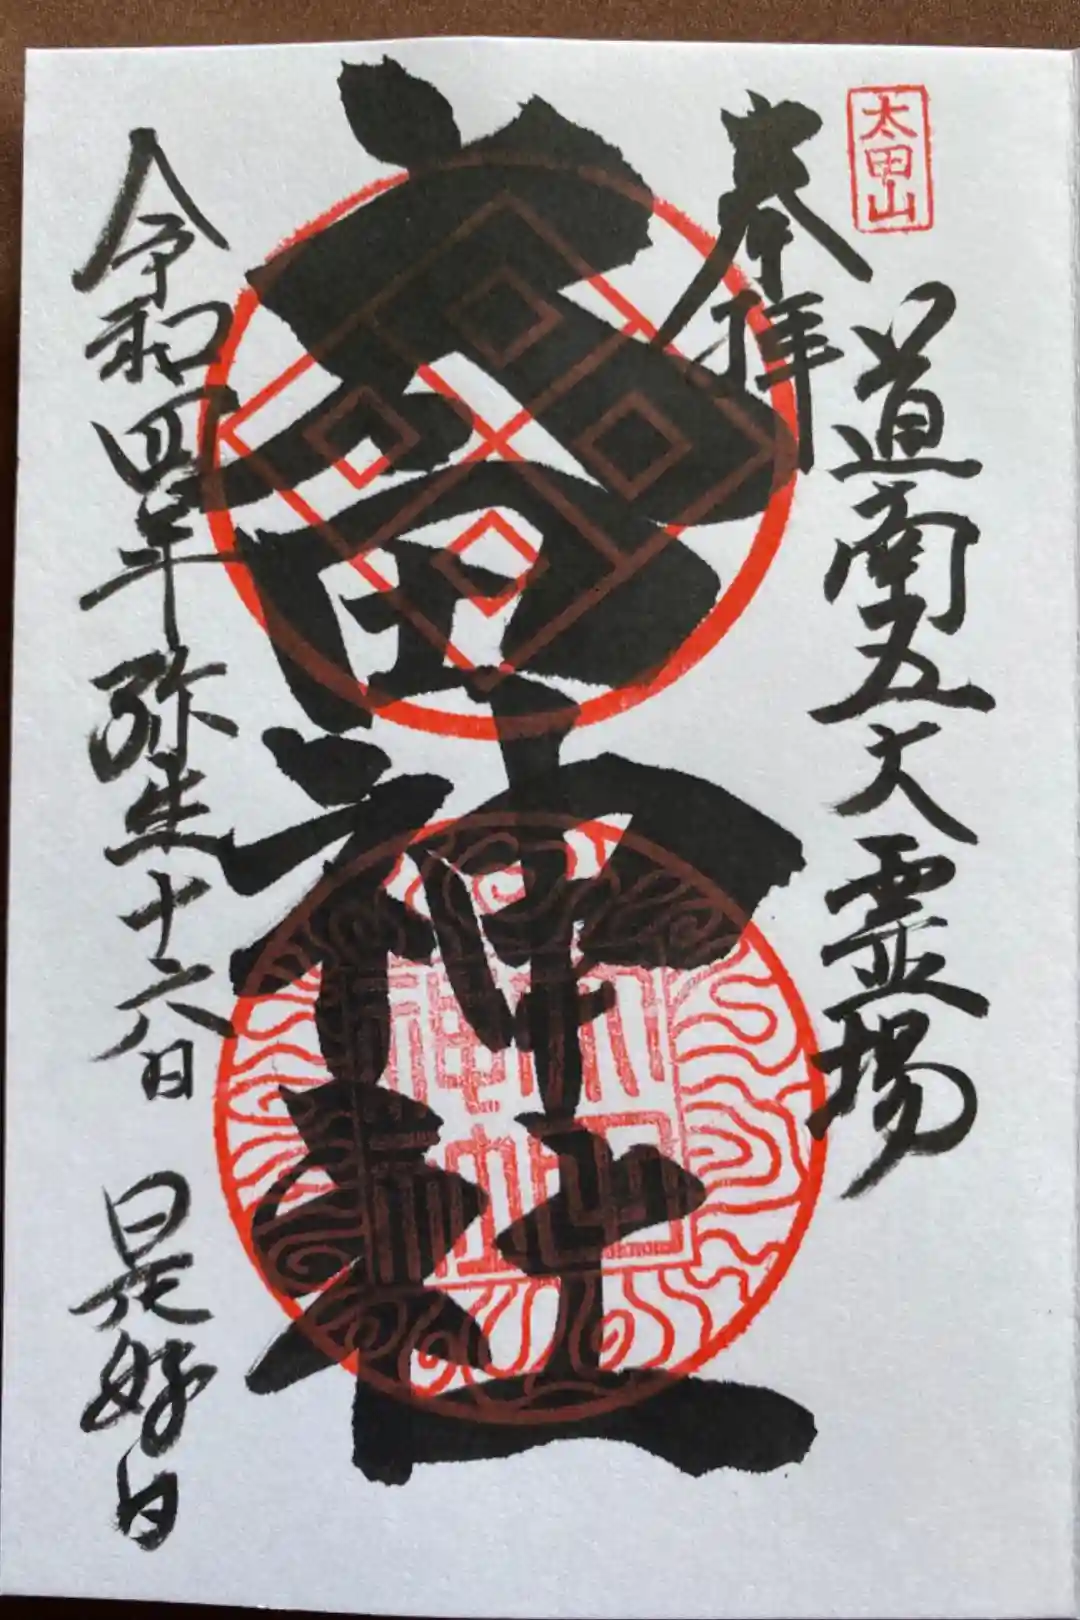 太田山
道南五大霊場
奉拝
太田神社
太田
神社
令和四年弥生十六日 日是好日